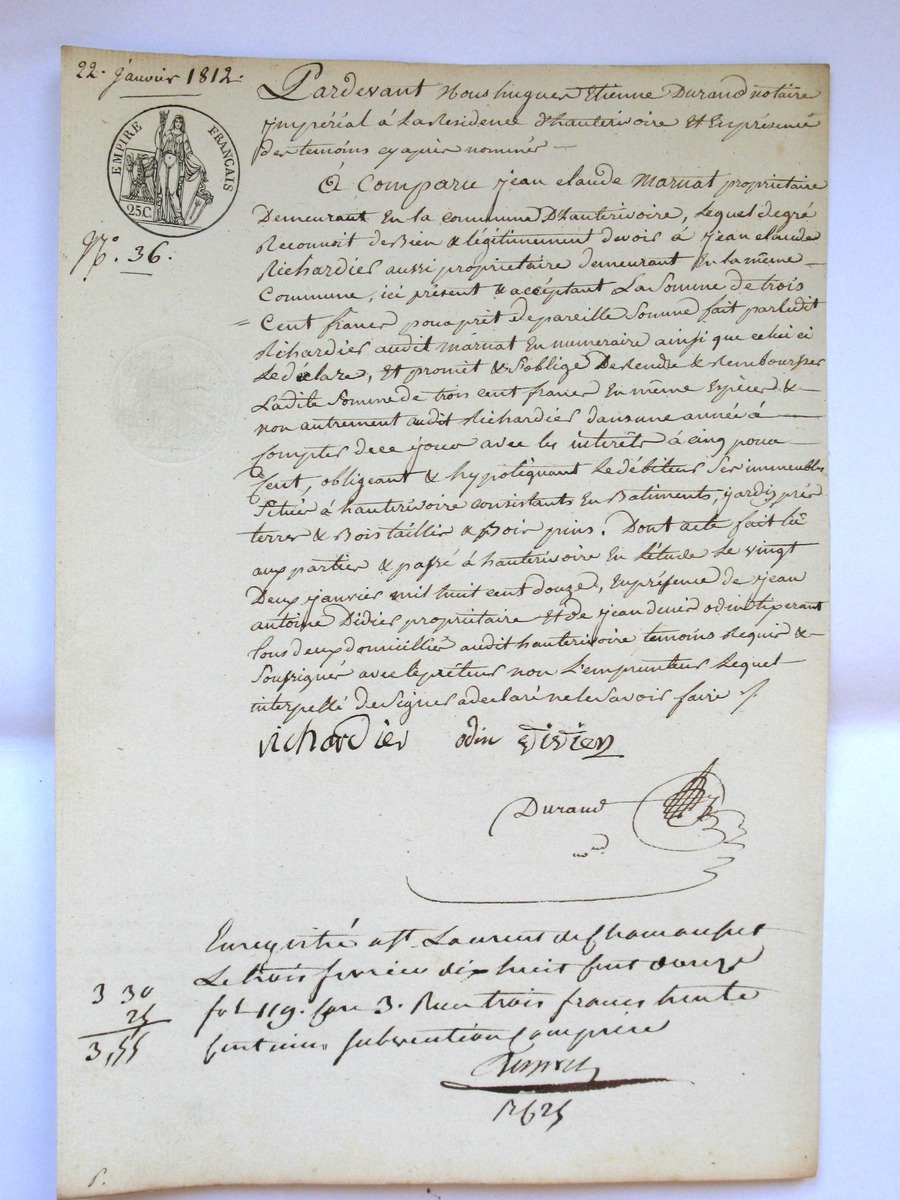 22. Janvier 1812.
EMPIRE FRANÇAIS
25 C.
N.° 36.
Pardevant Nous hugues Etienne Durand notaire
jmpérial á La Residence d'hauterivoire Et En présence
des temoins cy aprés nommés —
A Comparu jean claude Marnat propriétaire
Demeurant En la commune D'hauterivoire, Lequel de gré
Reconnoit de Bien & légitimement devoir á jean claude
Richardier aussi proprietaire demeurant En la même
Commune, ici présent & acceptant La Somme de trois
Cent francs pour prêt de pareille Somme fait par ledit
Richardier audit Marnat En numeraire ainsi que celui ci
Le déclare, Et promet & S'oblige De Rendre & Rembourser
Ladite Somme de trois cent francs En même Espèces &
non autrement audit Richardier dans une année á
compter de ce jour avec les interêts á cinq pour
Cent, obligeant & hypotéquant Le débiteur Ses immeubles
Situés á hauterivoire consistants En Batiments, jardis, prés
terres & Bois taillis & Bois pins. Dont acte fait lû
aux parties & passé á hauterivoire En L'étude Le vingt
Deux janvier mil huit cent douze, En présence de jean
antoine Didier propriétaire Et de jean denis odin tixerant
tous deux domiciliés audit hauterivoire temoins Requis &
Soussignés avec le prêteur non L'emprunteur Lequel
interpellé de Signer a declaré ne le Savoir faire /.
richardier odin Didier
Durand
no.re
Enregistré a St. Laurent de Chamousset
Le trois fevrier dix huit cent douze
fol. 119. Case 3. Reçu trois francs trente
centimes subvention Comprise
3 30
25
3,55